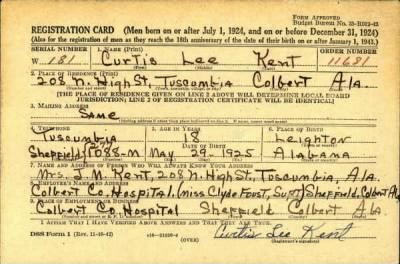 FORM APPROVED
Budget Bureau No. 33-R022-42
REGISTRATION CARD (Men born on or after July 1, 1924, and on or before December 31, 1924)
(Also for the registration of men as they reach the 18th anniversary of the date of their birth on or after January 1, 1943.)
SERIAL NUMBER 1. NAME (Print) ORDER NUMBER
W 181 Curtis Lee Kent 11681
(First) (Middle) (Last)
2. PLACE OF RESIDENCE (Print)
208 N. High St, Tuscumbia Colbert Ala.
[THE PLACE OF RESIDENCE GIVEN ON LINE 2 ABOVE WILL DETERMINE LOCAL BOARD
JURISDICTION; LINE 2 OF REGISTRATION CERTIFICATE WILL BE IDENTICAL]
3. MAILING ADDRESS
Same
4. TELEPHONE 5. AGE IN YEARS 6. PLACE OF BIRTH
Tuscumbia 18 Leighton
DATE OF BIRTH
Sheffield 1088-M May 29 1925 Alabama
7. NAME AND ADDRESS OF PERSON WHO WILL ALWAYS KNOW YOUR ADDRESS
Mrs. J. M. Kent, 208 N. High St, Tuscumbia, Ala.
8. EMPLOYER'S NAME AND ADDRESS
Colbert Co. Hospital, (Miss Clyde Foust, Supt) Sheffield, Colbert Ala
9. PLACE OF EMPLOYMENT OR BUSINESS
Colbert Co. Hospital Sheffield Colbert Ala.
I AFFIRM THAT I HAVE VERIFIED ABOVE ANSWERS AND THAT THEY ARE TRUE.
DSS Form 1 (Rev. 11-16-42) Curtis Lee Kent
(Registrant's signature)